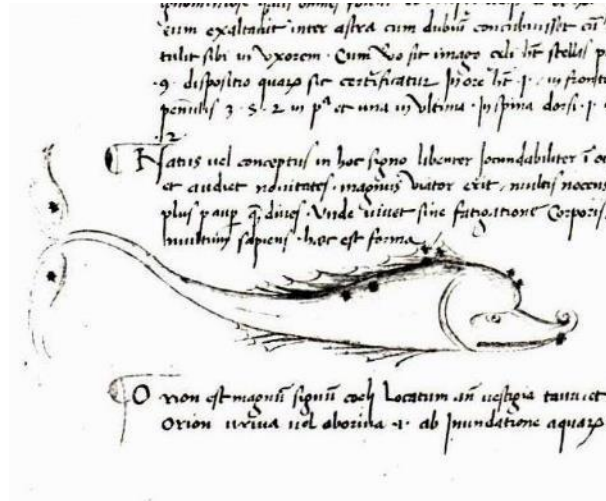 eum exaltauit inter astra cum dubiu concubuisset cu
tulit sibi in vxorem . Cum vo sit imago celi ht stellas
.9. dispositio quarp sic certificatur In ore ht .1. in
penulis 3 . S . 2 in pa et una in vltima . In spina dorsi . 1
.2.
Natus uel conceptus in hoc signo libenter Jocundabiliter
et audiet nouitates . magnus viator erit , multis nocens
plus paup q diues . Vnde viuet sine fatigatione Corporis
multum sapiens . hec est forma
Orion est magnu signu celi Locatum an uestigia tauri et
Orion vriua uel aborina .1. ab Inundatione aquarp